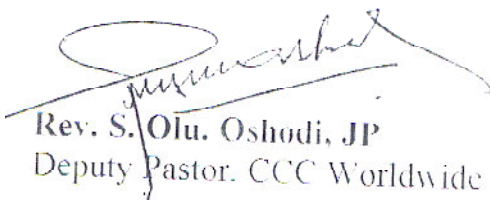 Rev. S. Olu. Oshodi, JP
Deputy Pastor. CCC Worldwide